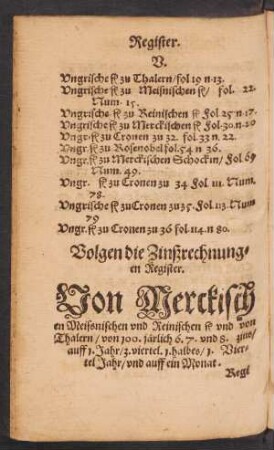 Register.
V.
Vngrische fl zu Thalern/fol 19 n 13.
Vngrische fl zu Meisnischen fl/ fol. 22.
Num. 15.
Vngrische fl zu Reinischen fl Fol 25 n 17.
Vngrische fl zu Merckischen fl Fol 30 n 20
Vngr fl zu Cronen zu 32. fol 33 n 22.
Vngr. fl zu Rosenobel fol. 54 n 36.
Vngr. fl zu Merckischen Schockin/ Fol 69
Num. 49.
Vngr. fl zu Cronen zu 34 Fol 111. Num.
78.
Vngrische fl zu Cronen zu 35. Fol 113 Num
79
Vngr. fl zu Cronen zu 36 fol 114 n 80.
Volgen die Zinßrechnung/
en Register.
Von Merckisch
en Meissnischen vnd Reinischen fl vnd von
Thalern/ von 100. järlich 6. 7. vnd 8. zins/
auff 1. Jahr/ 3. viertel. 1. halbes/ 1. Vier-
tel Jahr/ vnd auff ein Monat.
Regi